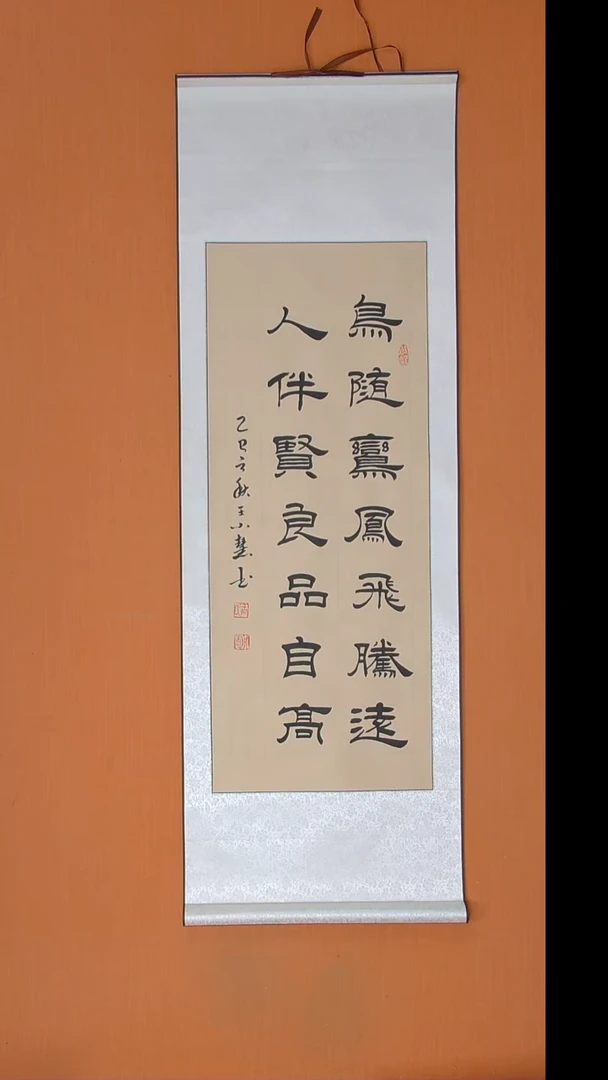 鳥隨鸞鳳飛騰遠
人伴賢良品自高
乙巳之秋王小慧书